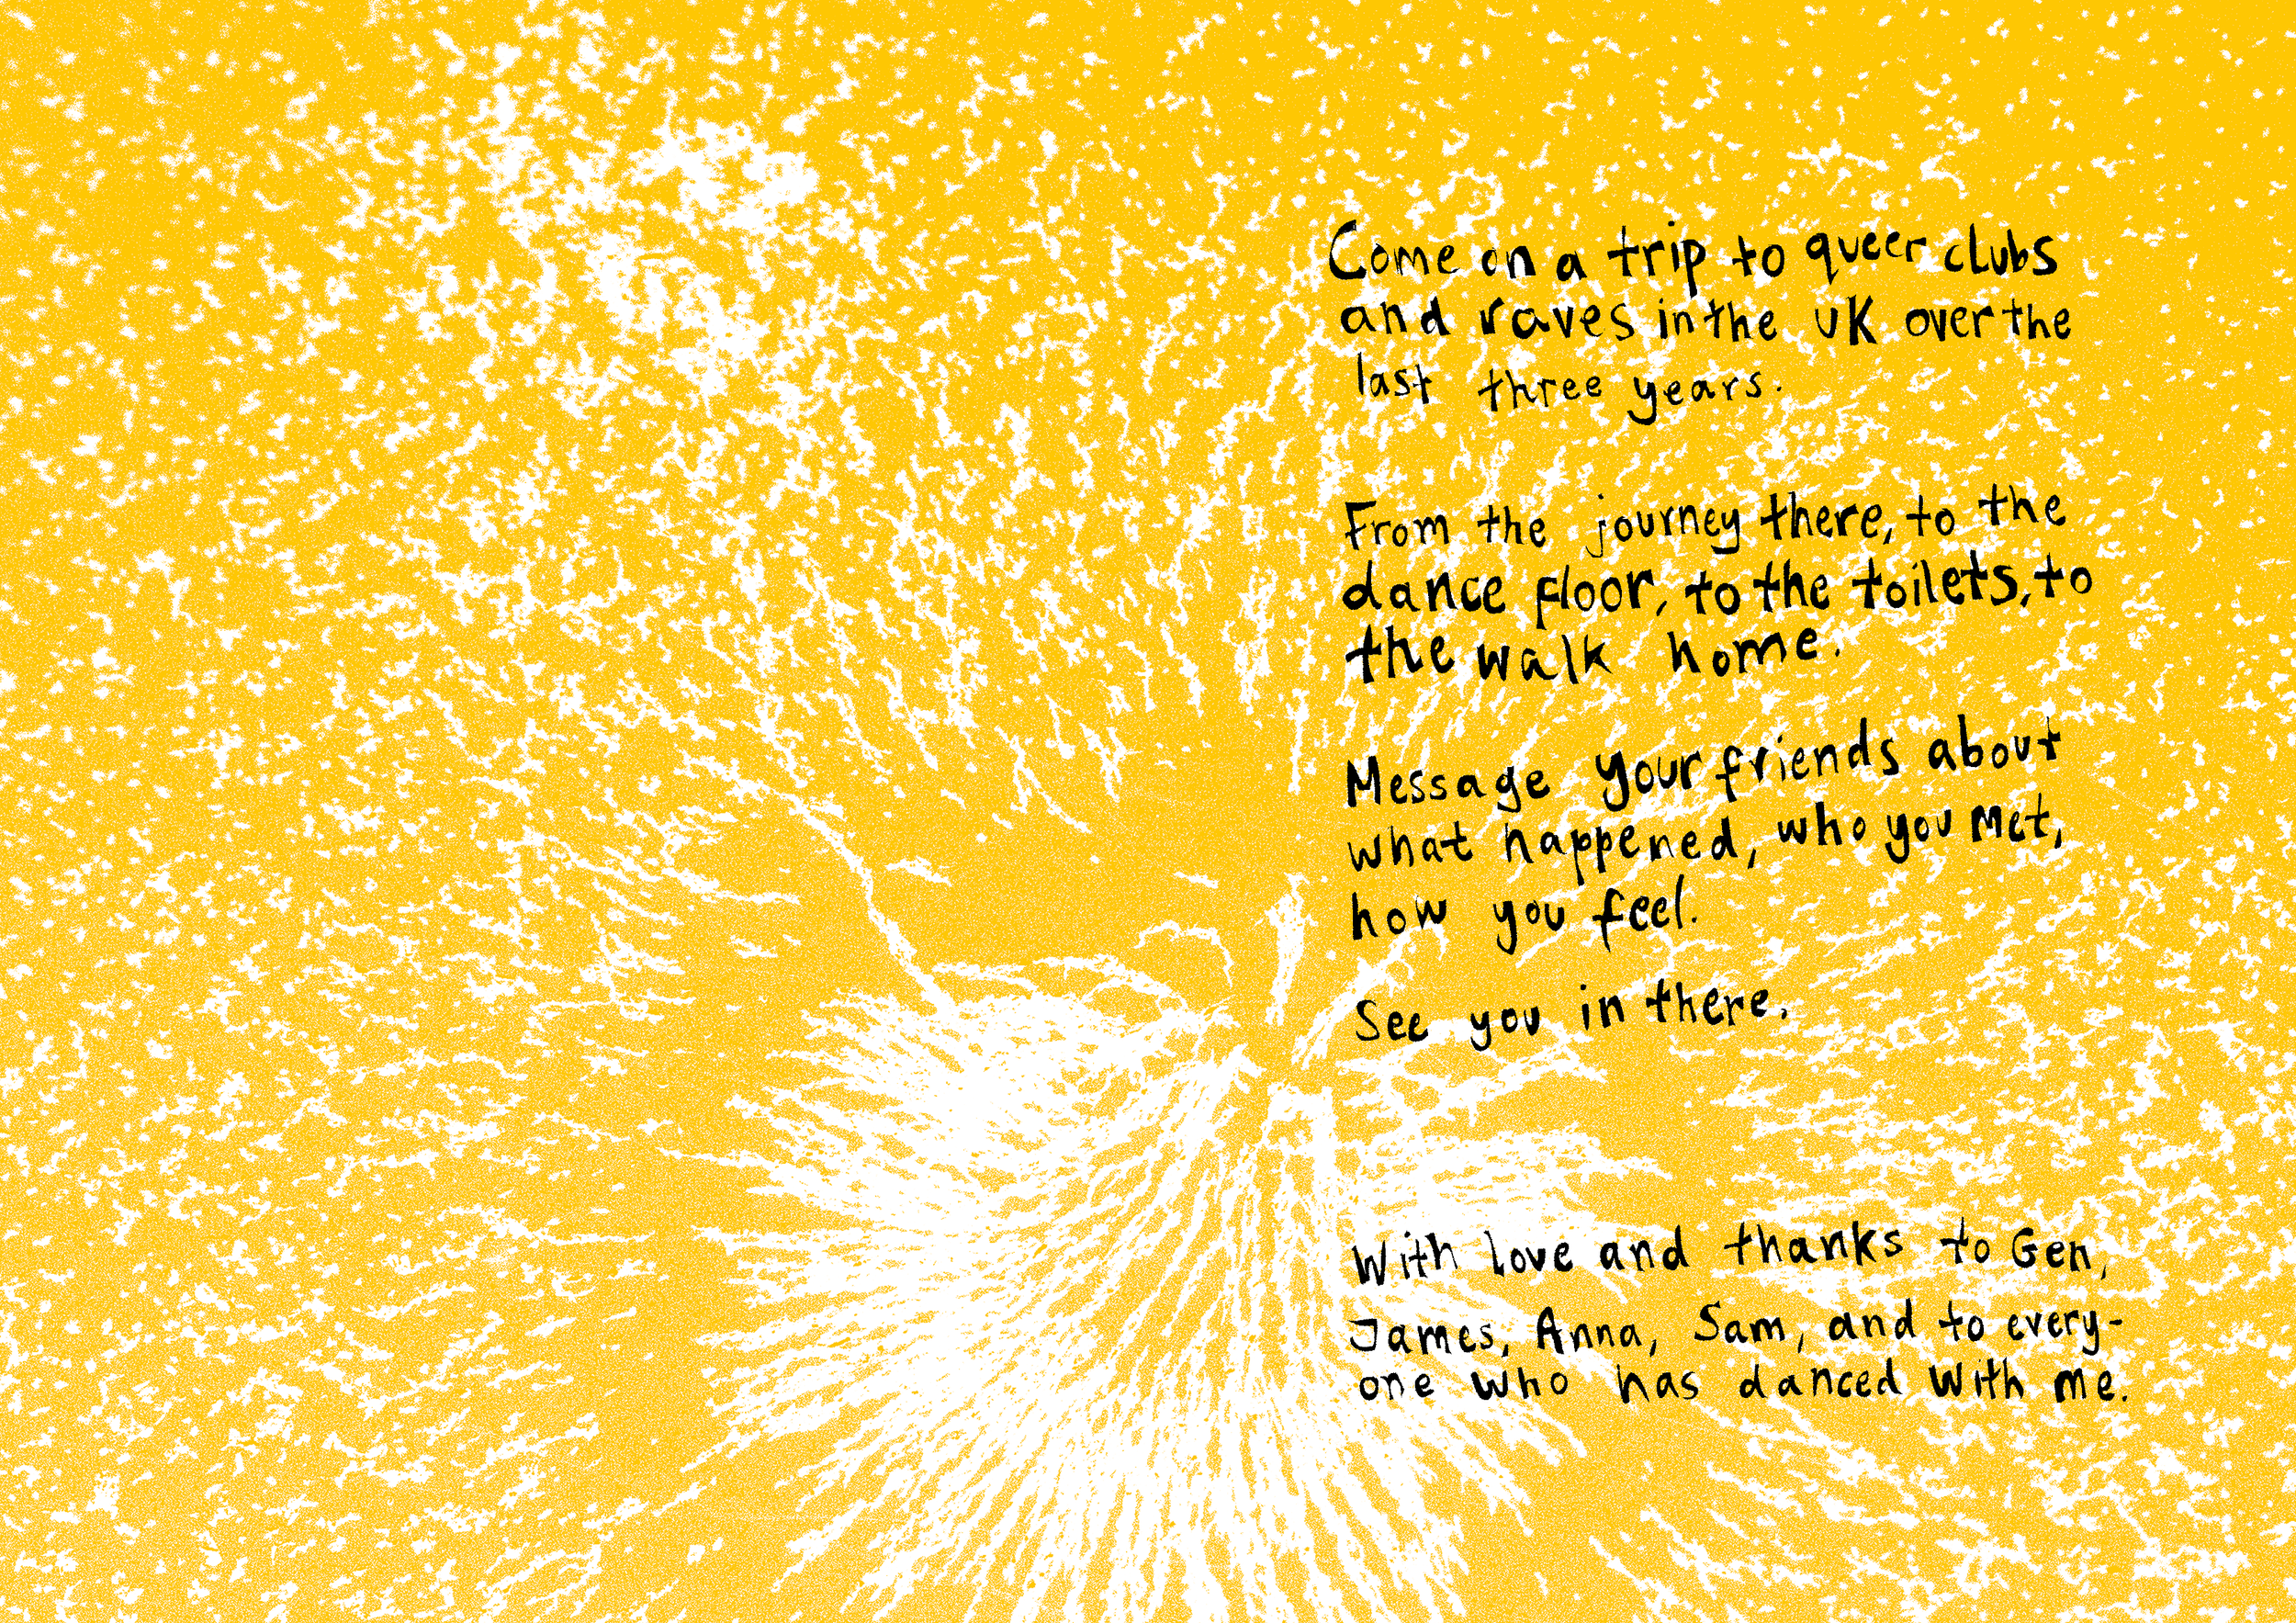 Come on a trip to queer clubs
and raves in the UK over the
last three years.
From the journey there, to the
dance floor, to the toilets, to
the walk home.
Message your friends about
what happened, who you met,
how you feel.
See you in there.
With love and thanks to Gen,
James, Anna, Sam, and to every-
one who has danced with me.